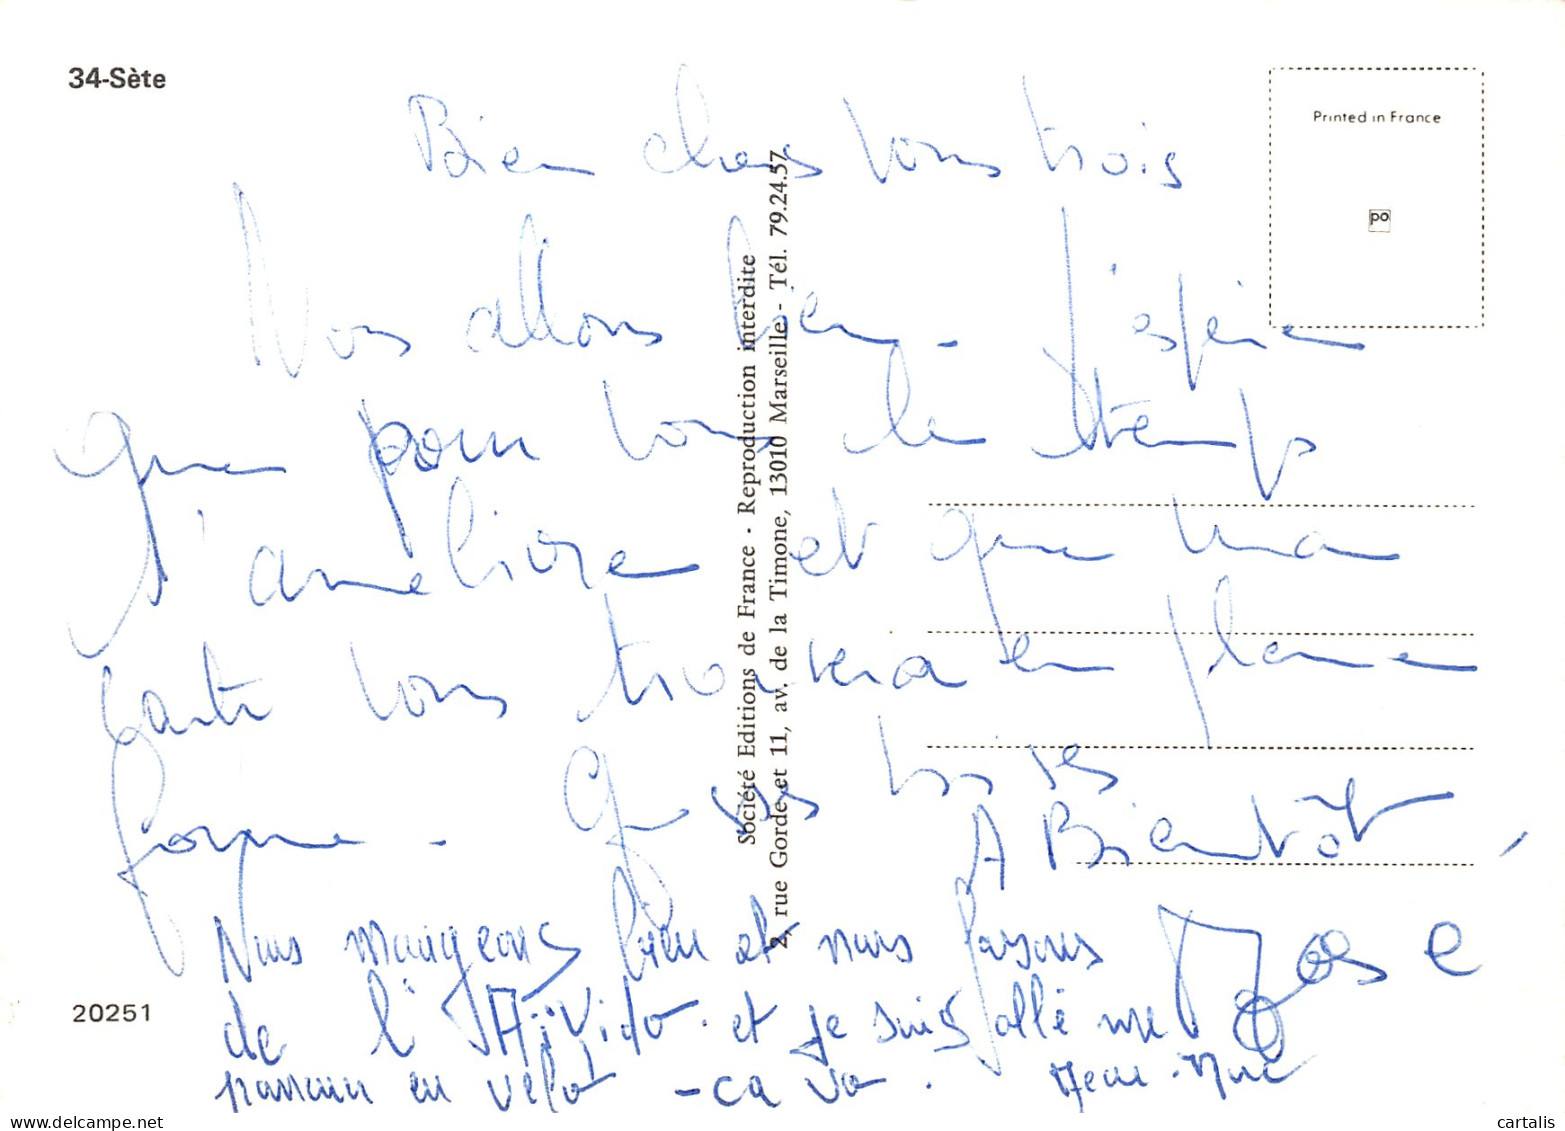 34-Sète
Printed in France
po
Bien chers vous trois
Nous allons bien - J'espère
que pour vous le temps
s'améliore et que ma
carte vous trouvera en pleine
forme - Grosses bises
A Bientôt,
José
Nous mangeons bien et nous faisons
de l'Aïkido. et je suis allé me
promener en vélo - ca va. Jean-Marc
Société Editions de France - Reproduction interdite
2, rue Gorde et 11, av. de la Timone, 13010 Marseille - Tél. 79.24.57
20251
delcampe.net
cartalis